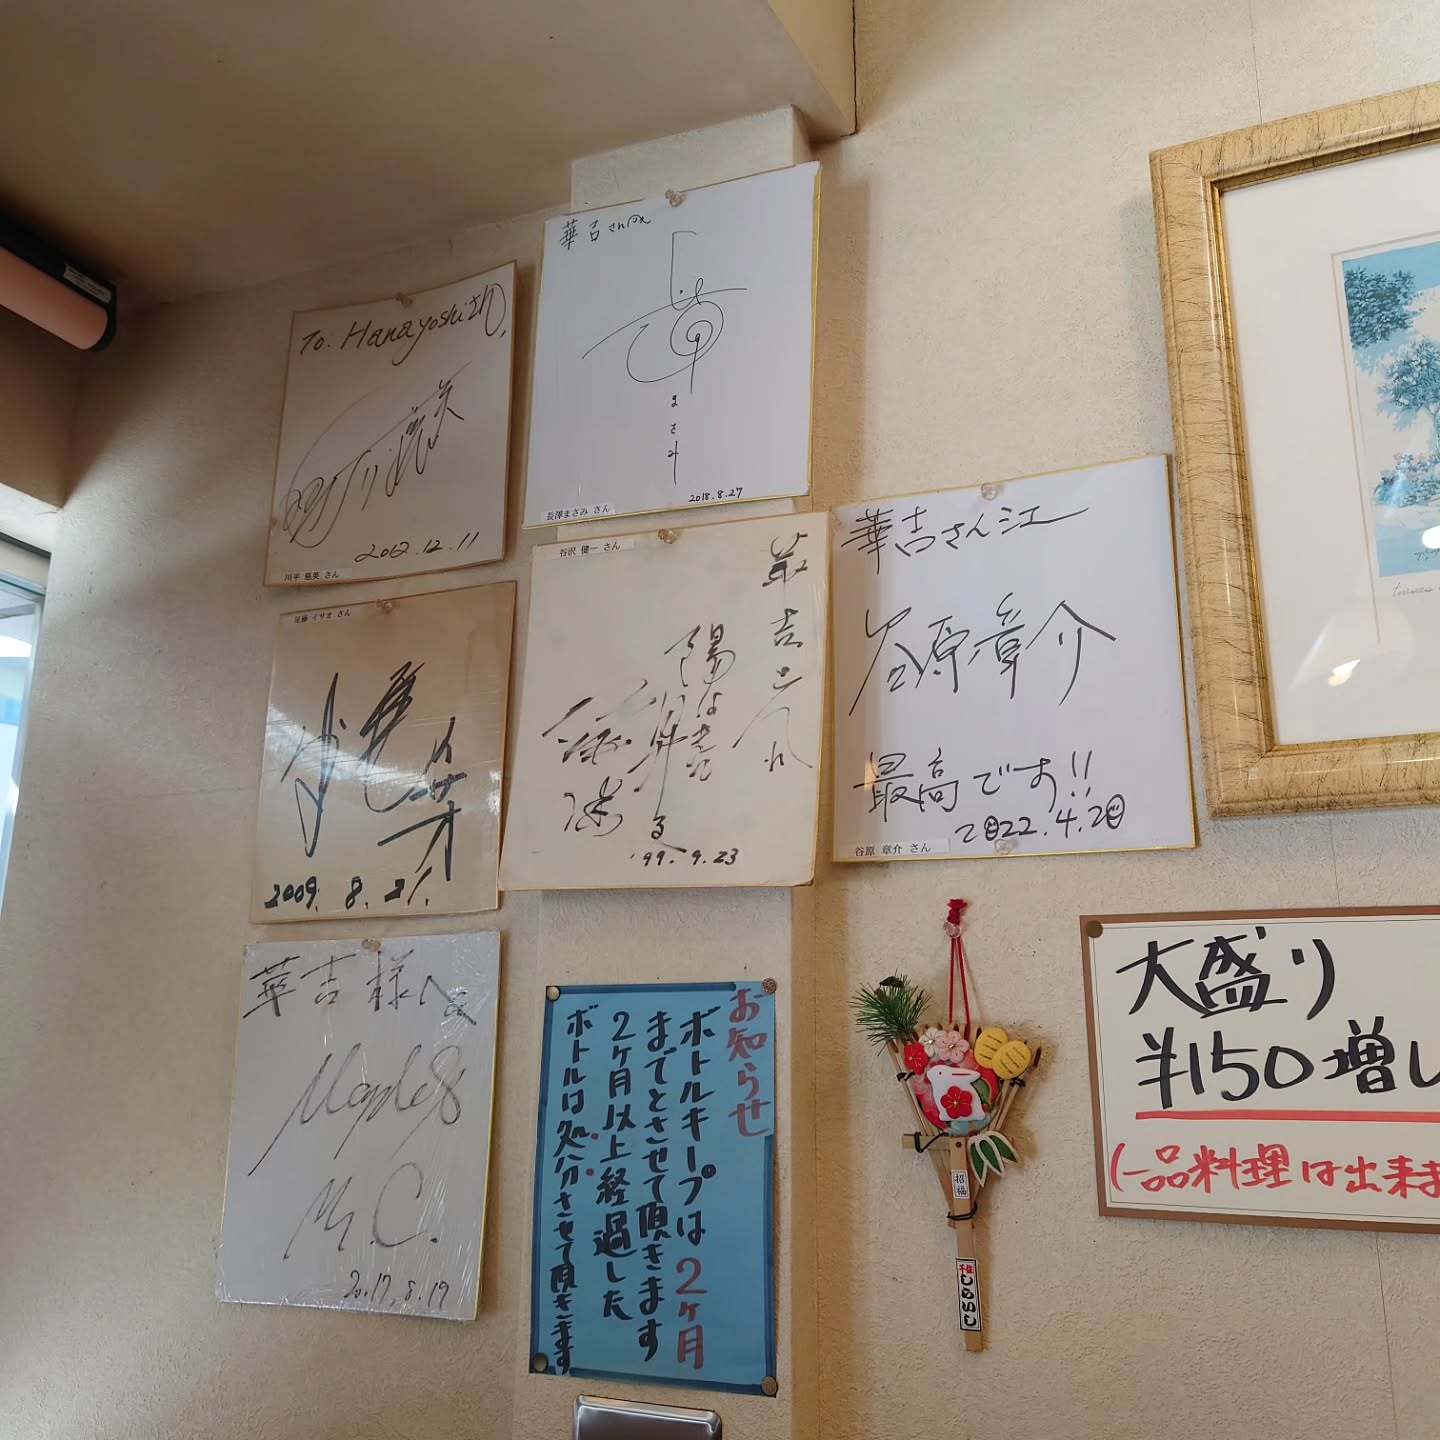 To. Hanayoshiさん,
2012.12.11
川平 慈英 さん
華吉さん
まさみ
2018.8.27
長澤まさみ さん
尾藤 イサオ さん
2009. 8. 21.
谷沢 健一 さん
'99. 9. 23
華吉さん江
谷原章介
最高です!!
2022.4.20
谷原 章介 さん
華吉様へ
M.C.
2017, 8.19
お知らせ
ボトルキープは2ケ月
までとさせて頂きます
2ケ月以上経過した
ボトルは処分させて頂きます
招福
千住
しらいし
大盛り
¥150増し
(一品料理は出来ま